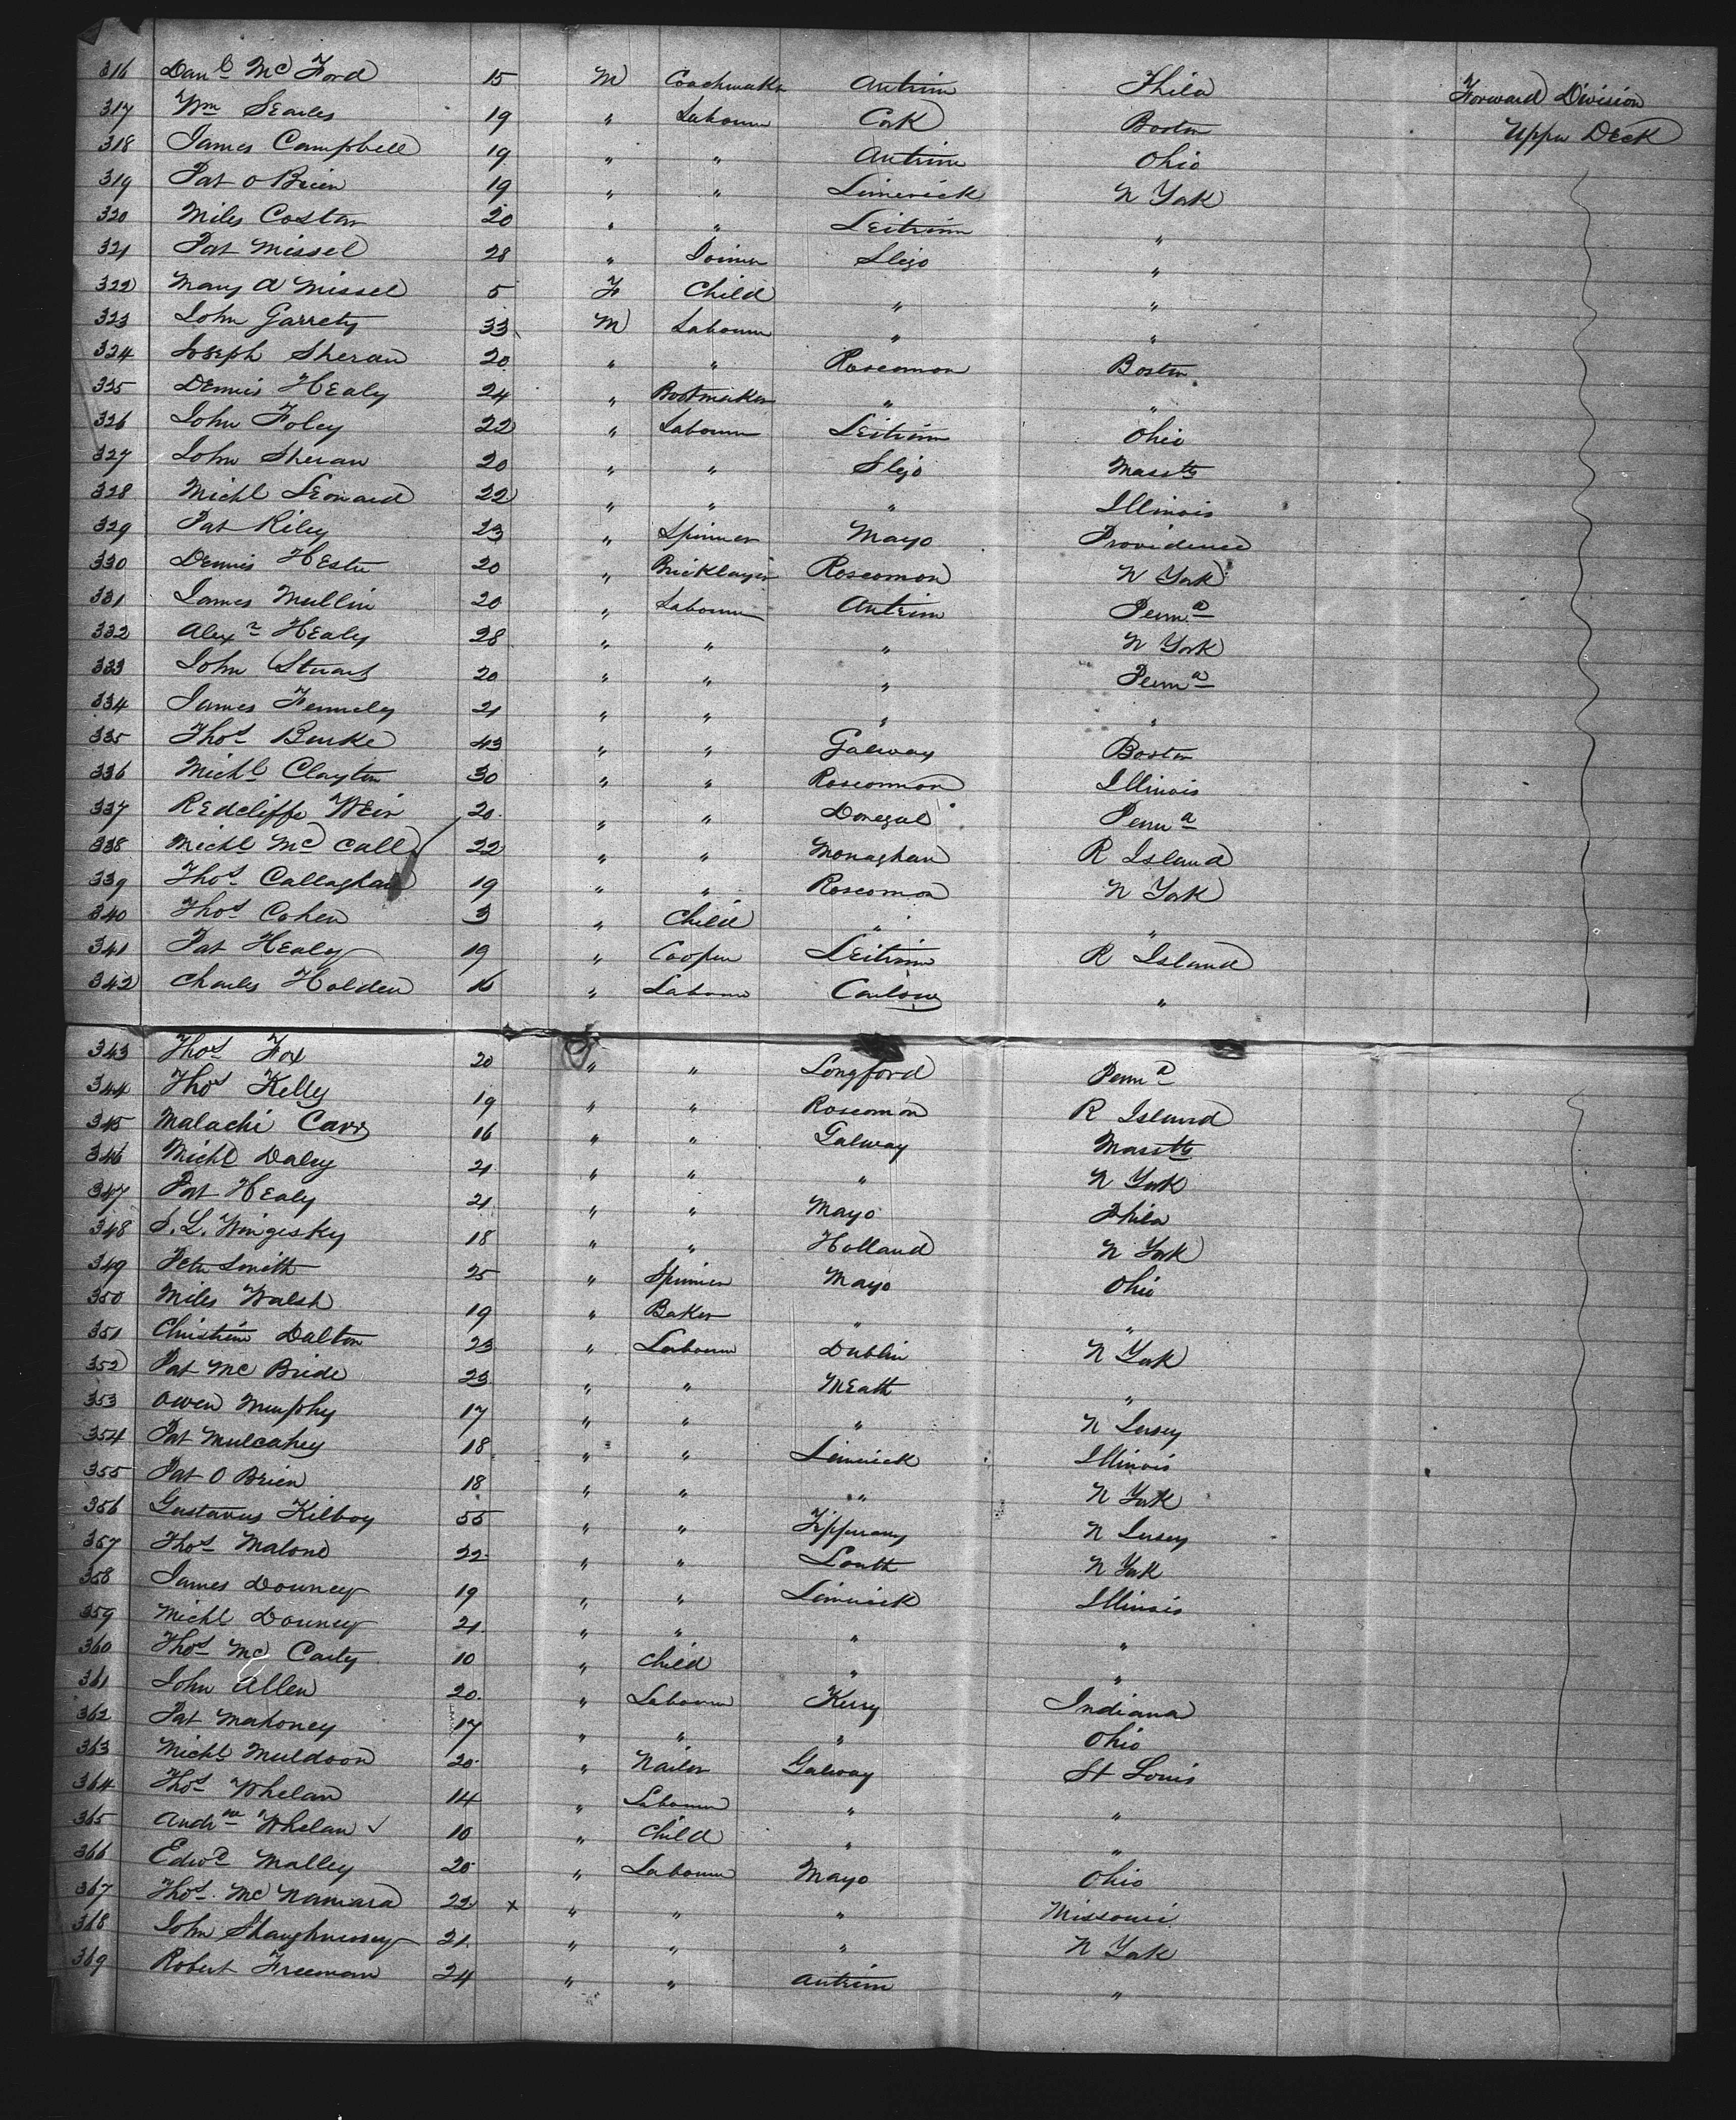 316 Danl McFord 15 M Coachmaker Antrim Phila Forward Division
317 Wm Searles 19 " Labourer Cork Boston Upper Deck
318 James Campbell 19 " " Antrim Ohio
319 Pat O Brien 19 " " Limerick N York
320 Miles Coston 20 " " Leitrim "
321 Pat Missel 28 " Joiner Sligo "
322 Mary A Missel 5 F Child " "
323 John Garrety 33 M Labourer " "
324 Joseph Sheran 20 " " Roscomon Boston
325 Dennis Healy 24 " Bootmaker " "
326 John Foley 22 " Labourer Leitrim Ohio
327 John Sheran 20 " " Sligo Massts
328 Michl Leonard 22 " " " Illinois
329 Pat Riley 23 " Spinner Mayo Providence
330 Dennis Hester 20 " Bricklayer Roscomon N York
331 James Mullin 20 " Labourer Antrim Penna
332 Alexr Healy 28 " " " N York
333 John Stuart 20 " " " Penna
334 James Fennely 21 " " " "
335 Thos Burke 43 " " Galway Boston
336 Michl Clayton 30 " " Roscommon Illinois
337 Redcliffe Weir 20 " " Donegal Penna
338 Michl Mc Call 22 " " Monaghan R Island
339 Thos Callaghan 19 " " Roscomon N York
340 Thos Cohen 3 " Child " "
341 Pat Healy 19 " Cooper Leitrim R Island
342 Charles Holden 16 " Labourer Carlow "
343 Thos Fox 20 " " Longford Penna
344 Thos Kelly 19 " " Roscomon R Island
345 Malachi Carr 16 " " Galway Massts
346 Michl Daley 21 " " " N York
347 Pat Healy 21 " " Mayo Phila
348 S. L. Wingesky 18 " " Holland N York
349 Peter Smith 25 " Spinner Mayo Ohio
350 Miles Walsh 19 " Baker " "
351 Christian Dalton 23 " Labourer Dublin N York
352 Pat Mc Bride 23 " " Meath "
353 Owen Murphy 17 " " " N Jersey
354 Pat Mulcahey 18 " " Limerick Illinois
355 Pat O Brien 18 " " " N York
356 Gustavus Kilboy 55 " " Tipperary N Jersey
357 Thos Malone 22 " " Louth N York
358 James Downey 19 " " Limerick Illinois
359 Michl Downey 21 " " " "
360 Thos Mc Carty 10 " Child " "
361 John Allen 20 " Labourer Kerry Indiana
362 Pat Mahoney 17 " " " Ohio
363 Michl Muldoon 20 " Nailor Galway St Louis
364 Thos Whelan 14 " Labourer " "
365 Andrw Whelan ✓ 10 " Child " "
366 Edwd Malley 20 " Labourer Mayo Ohio
367 Thos Mc Namara 22 x " " " Missouri
368 John Shaughnessy 21 " " " N York
369 Robert Freeman 24 " " Antrim "